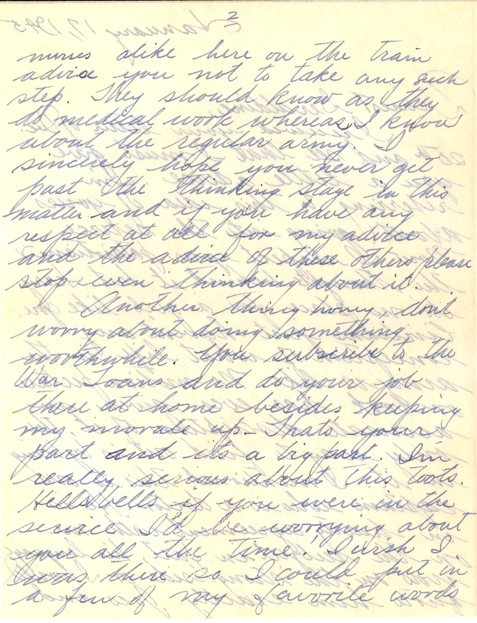 2
January 17, 1945
nurses alike here on the train
advise you not to take any such
step. They should know as they
do medical work whereas I know
about the regular army. I
sincerely hope you never get
past the thinking stage in this
matter and if you have any
respect at all for my advice
and the advice of these others please
stop even thinking about it.
Another thing honey don't
worry about doing something
worthwhile. You subscribe to the
War Loans and do your job
there at home besides keeping
my morale up - That's your
part and it's a big part. I'm
really serious about this toots.
Hells bells if you were in the
service I'd be worrying about
you all the time! I wish I
was there so I could put in
a few of my favorite words